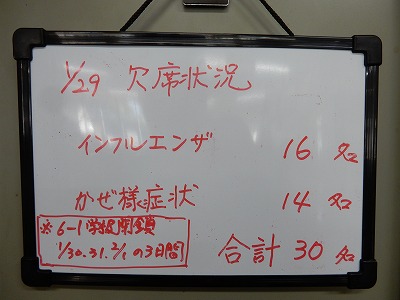 1/29 欠席状況
インフルエンザ 16名
かぜ様症状 14名
※6-1学級閉鎖
1/30.31.2/1の3日間
合計 30名